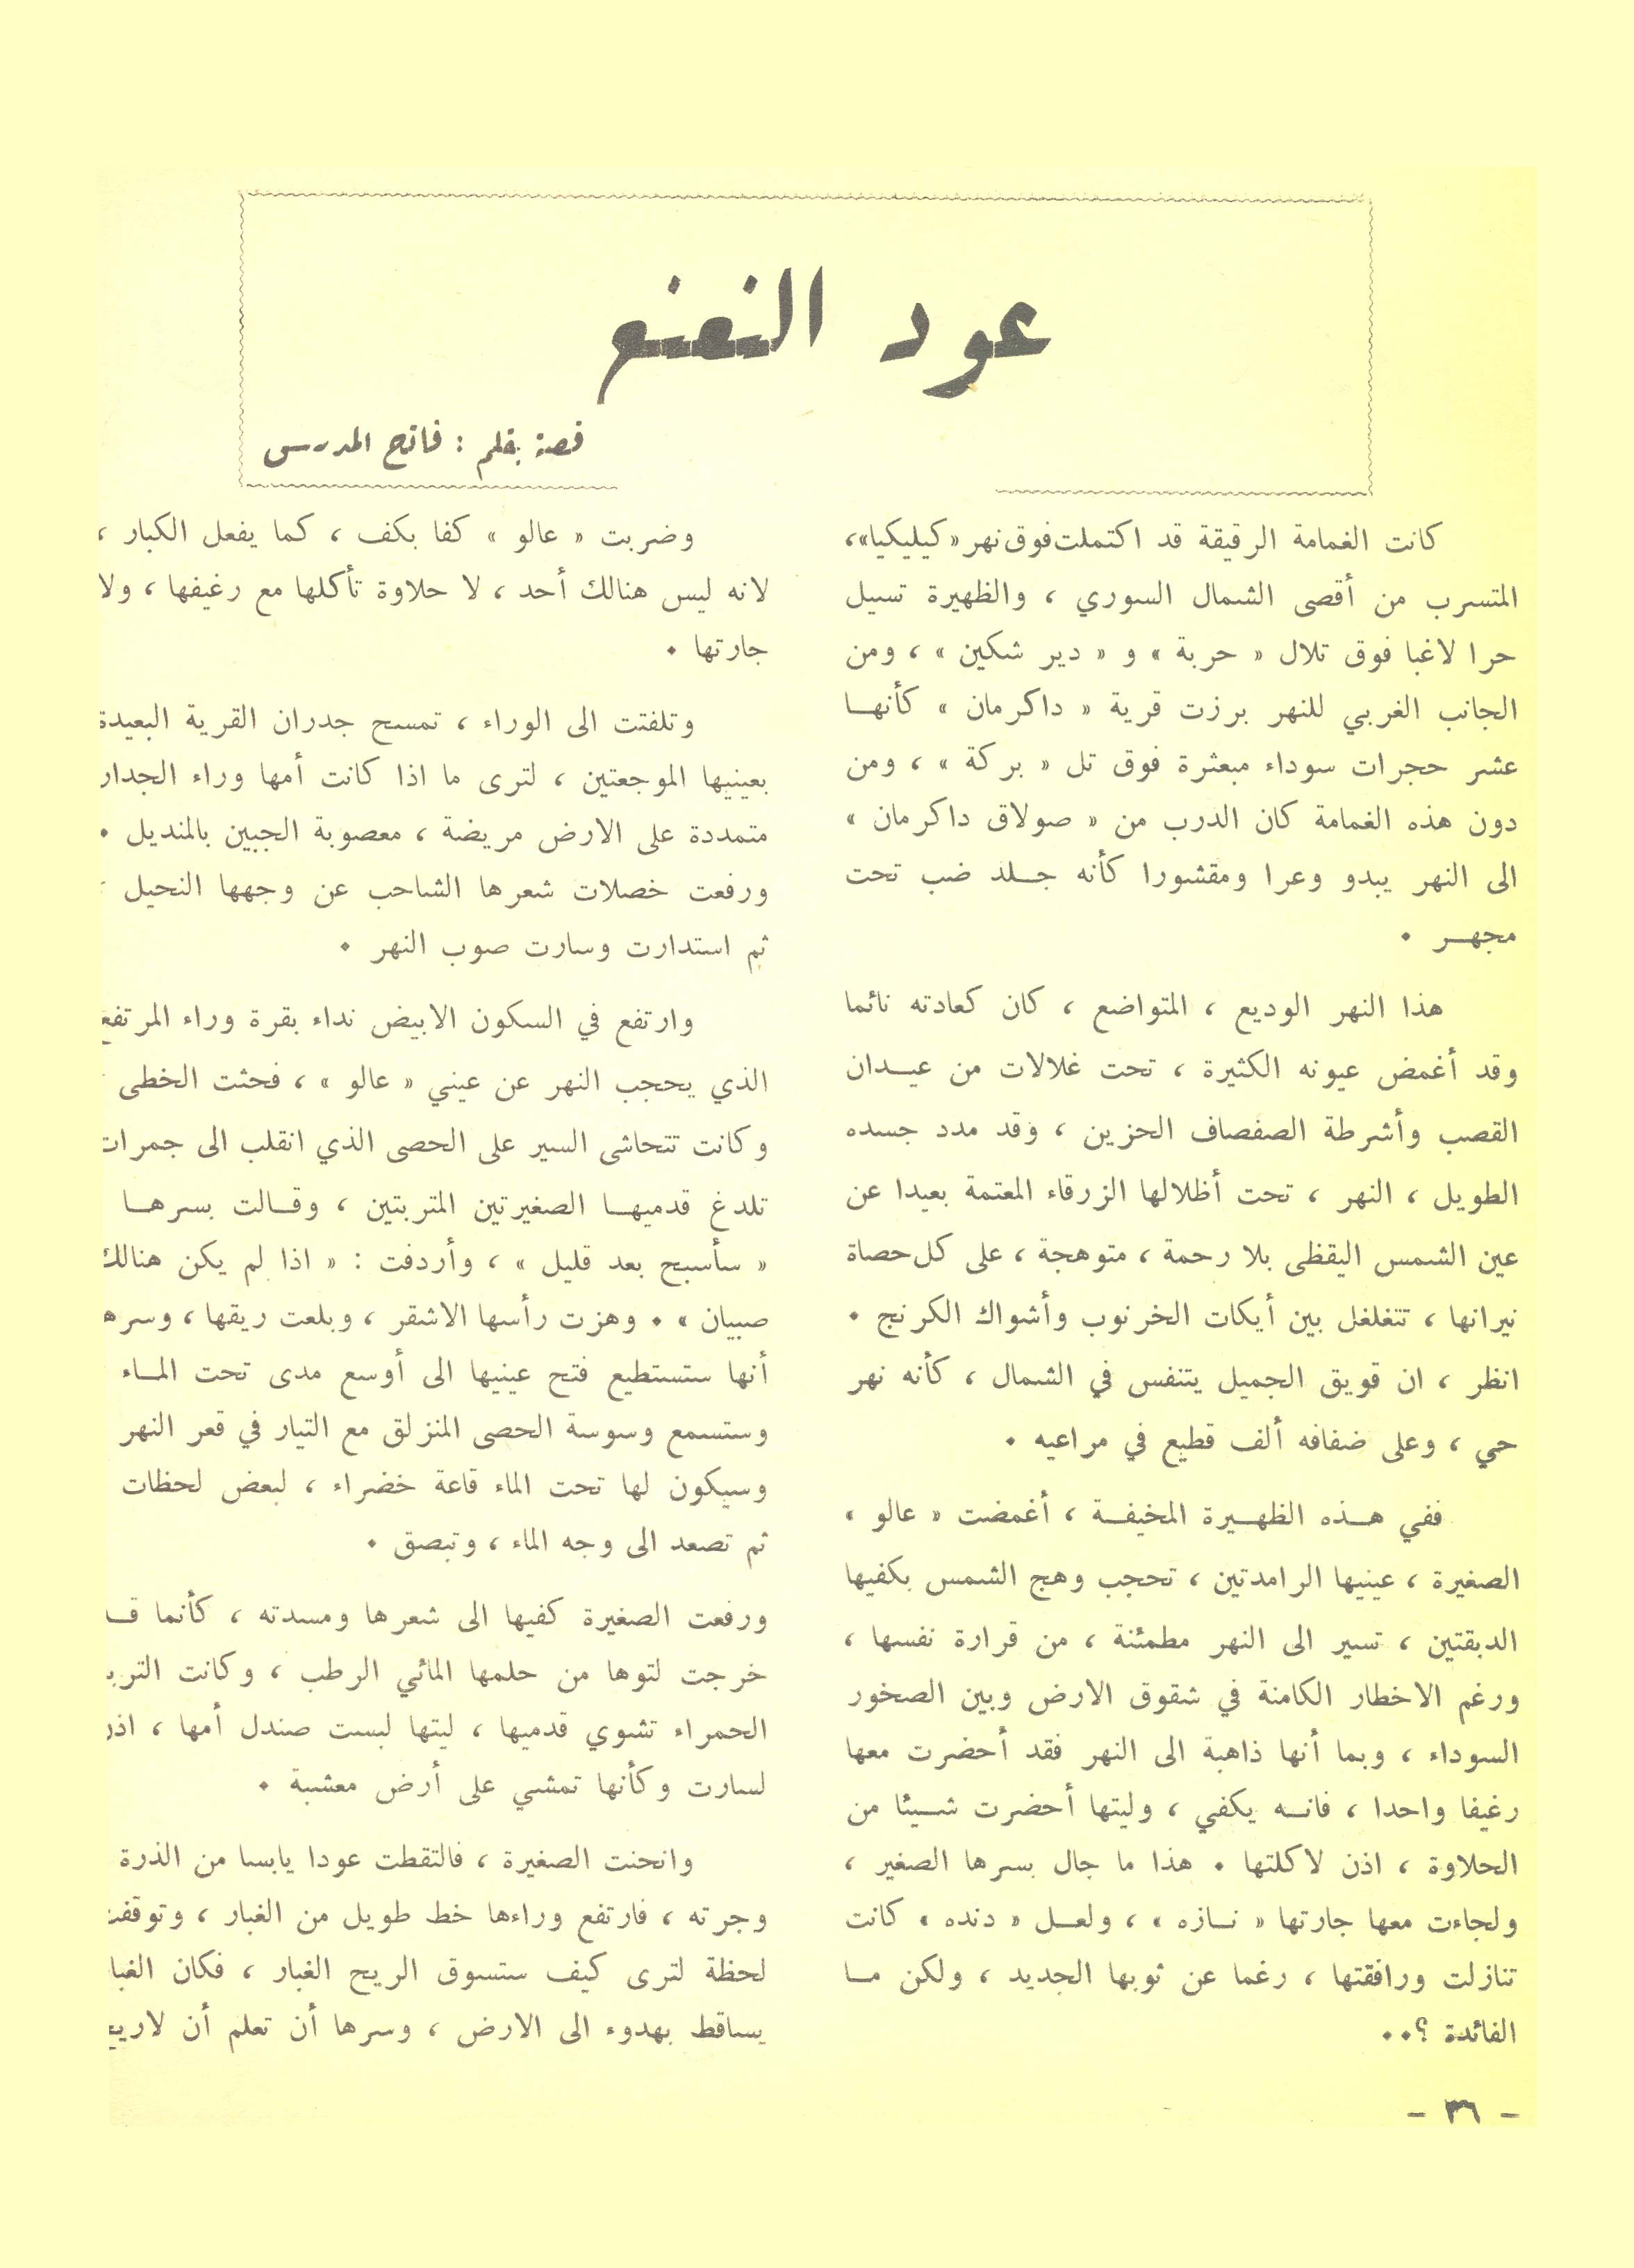 عود النعنع
قصة بقلم : فاتح المدرس
كانت الغمامة الرقيقة قد اكتملت فوق نهر «كيليكيا»،
المتسرب من أقصى الشمال السوري ، والظهيرة تسيل
حرا لاغبا فوق تلال « حربة » و « دير شكين » ، ومن
الجانب الغربي للنهر برزت قرية « داكرمان » كأنهـا
عشر حجرات سوداء مبعثرة فوق تل « بركة » ، ومن
دون هذه الغمامة كان الدرب من « صولاق داكرمان »
الى النهر يبدو وعرا ومقشورا كأنه جـلد ضب تحت
مجهـر .
هذا النهر الوديع ، المتواضع ، كان كعادته نائما
وقد أغمض عيونه الكثيرة ، تحت غلالات من عيـدان
القصب وأشرطة الصفصاف الحزين ، وقد مدد جسده
الطويل ، النهر ، تحت أظلالها الزرقاء المعتمة بعيدا عن
عين الشمس اليقظى بلا رحمة ، متوهجة ، على كل حصاة
نيرانها ، تتغلغل بين أيكات الخرنوب وأشواك الكرنج .
انظر ، ان قويق الجميل يتنفس في الشمال ، كأنه نهر
حي ، وعلى ضفافه ألف قطيع في مراعيه .
ففي هـذه الظهـيرة المخيفـة ، أغمضت « عالو »
الصغيرة ، عينيها الرامدتين ، تحجب وهج الشمس بكفيها
الدبقتين ، تسير الى النهر مطمئنة ، من قرارة نفسها ،
ورغم الاخطار الكامنة في شقوق الارض وبين الصخور
السوداء ، وبما أنها ذاهبة الى النهر فقد أحضرت معها
رغيفا واحدا ، فانـه يكفي ، وليتها أحضرت شـيئا من
الحلاوة ، اذن لاكلتها . هذا ما جال بسرها الصغير ،
ولجاءت معها جارتها « نـازه » ، ولعـل « دنده » كانت
تنازلت ورافقتها ، رغما عن ثوبها الجديد ، ولكن مـا
الفائدة ؟..
وضربت « عالو » كفا بكف ، كما يفعل الكبار ،
لانه ليس هنالك أحد ، لا حلاوة تأكلها مع رغيفها ، ولا
جارتها .
وتلفتت الى الوراء ، تمسح جدران القرية البعيدة
بعينيها الموجعتين ، لترى ما اذا كانت أمها وراء الجدار
متمددة على الارض مريضة ، معصوبة الجبين بالمنديل .
ورفعت خصلات شعرها الشاحب عن وجهها النحيل
ثم استدارت وسارت صوب النهر .
وارتفع في السكون الابيض نداء بقرة وراء المرتفع
الذي يحجب النهر عن عيني « عالو » ، فحثت الخطى
وكانت تتحاشى السير على الحصى الذي انقلب الى جمرات
تلدغ قدميهـا الصغيرتين المتربتين ، وقـالت بسرهـا
« سأسبح بعد قليل » ، وأردفت : « اذا لم يكن هنالك
صبيان » . وهزت رأسها الاشقر ، وبلعت ريقها ، وسرها
أنها ستستطيع فتح عينيها الى أوسع مدى تحت المـاء
وستسمع وسوسة الحصى المنزلق مع التيار في قعر النهر
وسيكون لها تحت الماء قاعة خضراء ، لبعض لحظات
ثم تصعد الى وجه الماء ، وتبصق .
ورفعت الصغيرة كفيها الى شعرها ومسدته ، كأنما قـ
خرجت لتوها من حلمها المائي الرطب ، وكانت الترب
الحمراء تشوي قدميها ، ليتها لبست صندل أمها ، اذن
لسارت وكأنها تمشي على أرض معشبة .
وانحنت الصغيرة ، فالتقطت عودا يابسا من الذرة
وجرته ، فارتفع وراءها خط طويل من الغبار ، وتوقفت
لحظة لترى كيف ستسوق الريح الغبار ، فكان الغبا
يساقط بهدوء الى الارض ، وسرها أن تعلم أن لاريح
- ٣٦ -